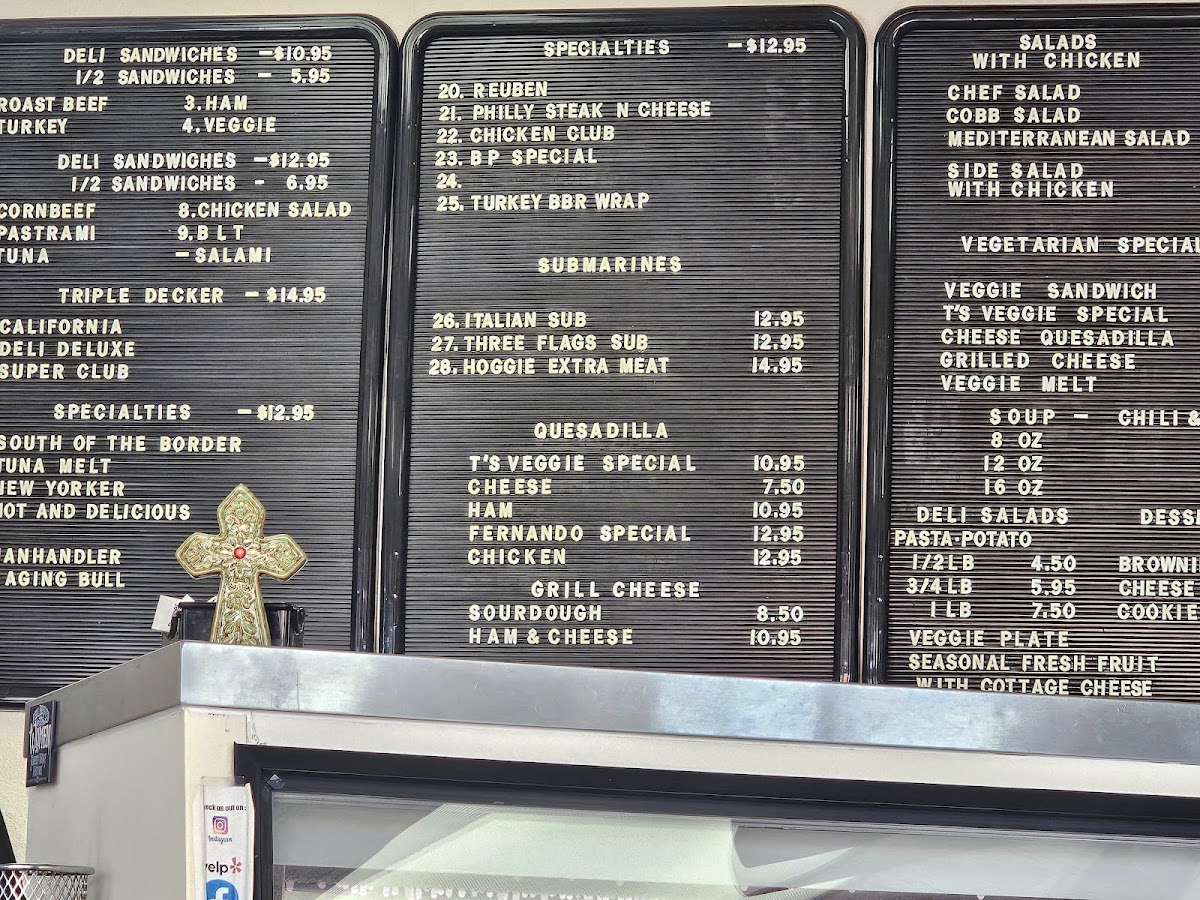 DELI SANDWICHES -$10.95
1/2 SANDWICHES - 5.95
ROAST BEEF 3. HAM
TURKEY 4. VEGGIE
DELI SANDWICHES -$12.95
1/2 SANDWICHES - 6.95
CORNBEEF 8. CHICKEN SALAD
PASTRAMI 9. B L T
TUNA - SALAMI
TRIPLE DECKER -$14.95
CALIFORNIA
DELI DELUXE
SUPER CLUB
SPECIALTIES -$12.95
SOUTH OF THE BORDER
TUNA MELT
NEW YORKER
HOT AND DELICIOUS
MANHANDLER
AGING BULL
SPECIALTIES -$12.95
20. REUBEN
21. PHILLY STEAK N CHEESE
22. CHICKEN CLUB
23. B P SPECIAL
24.
25. TURKEY BBR WRAP
SUBMARINES
26. ITALIAN SUB 12.95
27. THREE FLAGS SUB 12.95
28. HOGGIE EXTRA MEAT 14.95
QUESADILLA
T'S VEGGIE SPECIAL 10.95
CHEESE 7.50
HAM 10.95
FERNANDO SPECIAL 12.95
CHICKEN 12.95
GRILL CHEESE
SOURDOUGH 8.50
HAM & CHEESE 10.95
SALADS
WITH CHICKEN
CHEF SALAD
COBB SALAD
MEDITERRANEAN SALAD
SIDE SALAD
WITH CHICKEN
VEGETARIAN SPECIAL
VEGGIE SANDWICH
T'S VEGGIE SPECIAL
CHEESE QUESADILLA
GRILLED CHEESE
VEGGIE MELT
SOUP - CHILI &
8 OZ
12 OZ
16 OZ
DELI SALADS DESS
PASTA-POTATO
1/2 LB 4.50 BROWNI
3/4 LB 5.95 CHEESE
1 LB 7.50 COOKIE
VEGGIE PLATE
SEASONAL FRESH FRUIT
WITH COTTAGE CHEESE
eck us out on:
Instagram
yelp